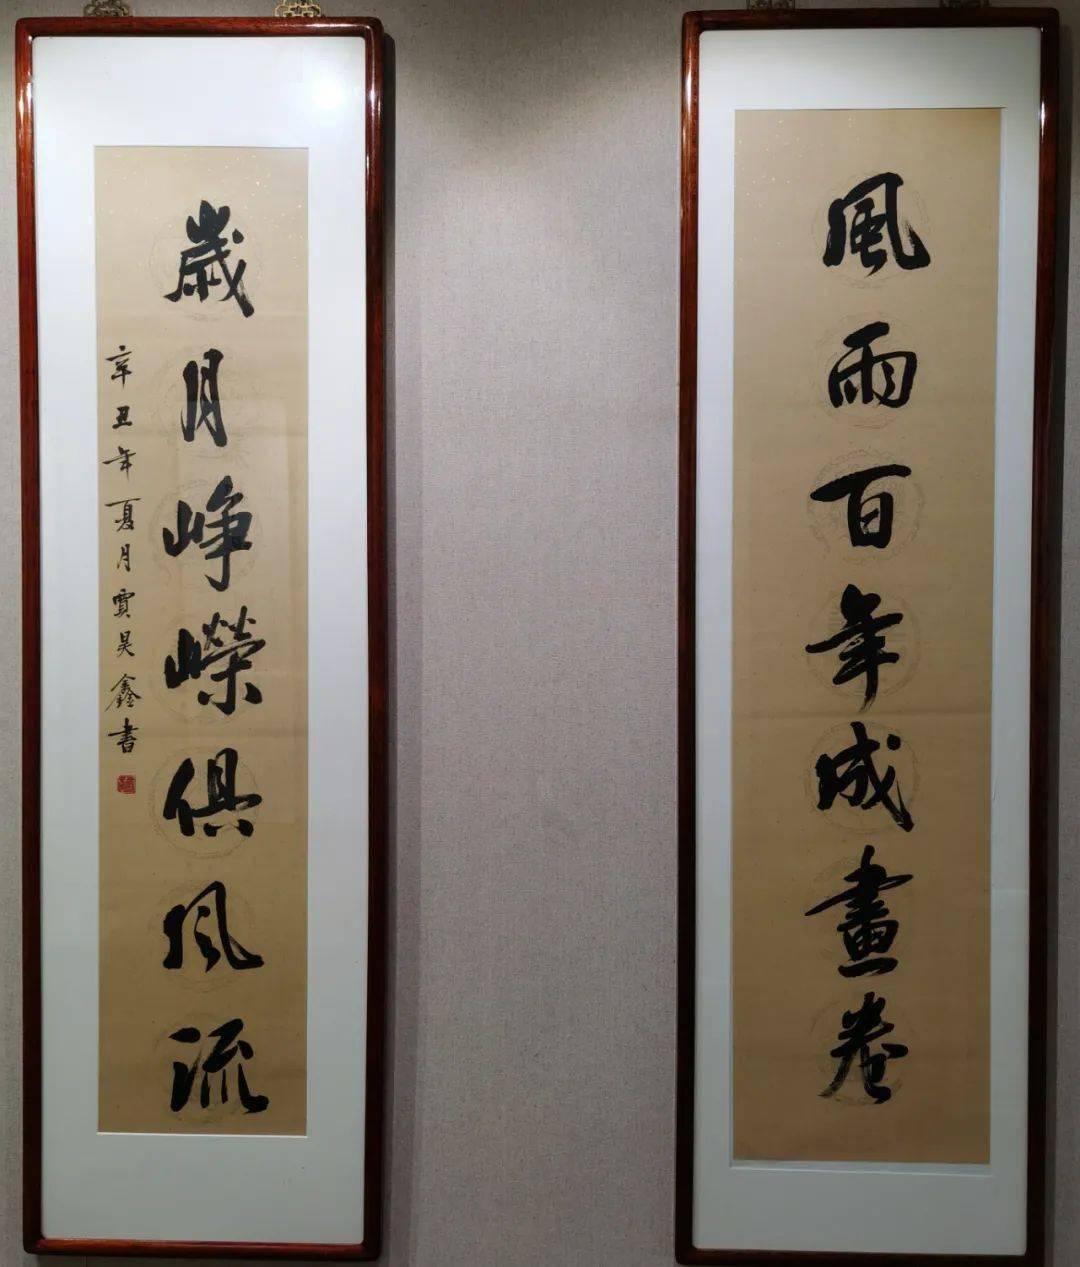 風雨百年成畫卷
歲月崢嶸俱風流
辛丑年夏月賈昊鑫書